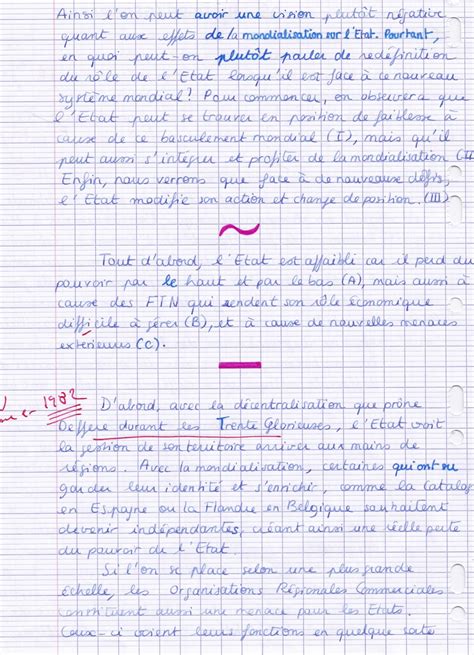 Ainsi l'on peut avoir une vision plutôt négative
quant aux effets de la mondialisation sur l'Etat. Pourtant,
en quoi peut-on plutôt parler de redéfinition
du rôle de l'Etat lorsqu'il est face à ce nouveau
système mondial? Pour commencer, on observera que
l'Etat peut se trouver en position de faiblesse à
cause de ce basculement mondial (I), mais qu'il
peut aussi s'intégrer et profiter de la mondialisation (II
Enfin, nous verrons que face à de nouveaux défis,
l'Etat modifie son action et change de position. (III)
Tout d'abord, l'Etat est affaibli car il perd du
pouvoir par le haut et par le bas (A), mais aussi à
cause des FTN qui rendent son rôle économique
difficile à gérer (B), et à cause de nouvelles menaces
extérieures (C).
1982
D'abord, avec la décentralisation que prône
Defferre durant les Trente Glorieuses, l'Etat voit
la gestion de son territoire arriver aux mains de
régions. Avec la mondialisation, certaines qui ont su
garder leur identité et s'enrichir, comme la Catalog
en Espagne ou la Flandre en Belgique souhaitent
devenir indépendantes, créant ainsi une réelle perte
du pouvoir de l'Etat.
Si l'on se place selon une plus grande
échelle, les Organisations Régionales Commerciales
constituent aussi une menace pour les Etats.
Ceux-ci voient leurs fonctions en quelque sorte